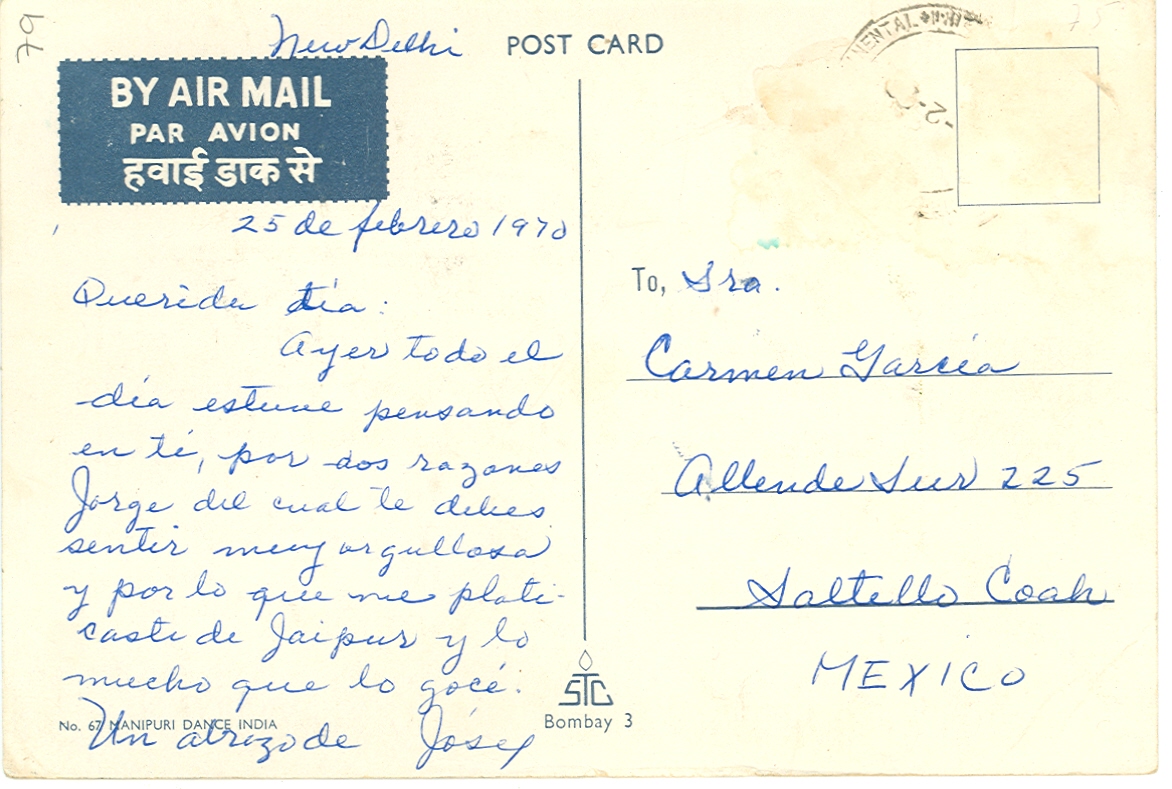 79
New Delhi
POST CARD
BY AIR MAIL
PAR AVION
हवाई डाक से
25 de febrero 1970
Querida tía:
Ayer todo el
día estuve pensando
en ti, por dos razones
Jorge del cual te debes
sentir muy orgullosa
y por lo que me plati-
caste de Jaipur y lo
mucho que lo gocé.
Un abrazo de
No. 67 MANIPURI DANCE INDIA
STC
Bombay 3
75
To, Sra.
Carmen García
Allende Sur 225
Saltello Coah
MEXICO